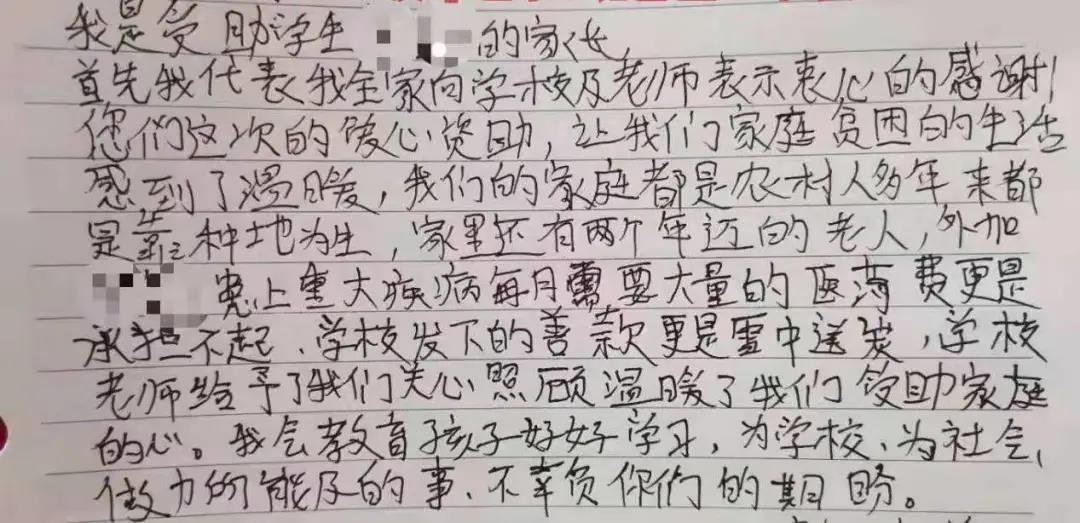 我是受助学生 的家长
首先我代表我全家向学校及老师表示衷心的感谢!
您们这次的爱心资助，让我们家庭贫困的生活
感到了温暖，我们的家庭都是农村人多年来都
是靠种地为生，家里还有两个年迈的老人，外加
患上重大疾病每月需要大量的医药费更是
承担不起、学校发下的善款更是雪中送炭，学校
老师给予了我们关心照顾温暖了我们受助家庭
的心。我会教育孩子好好学习，为学校、为社会、
做力的能及的事、不幸负你们的期盼。